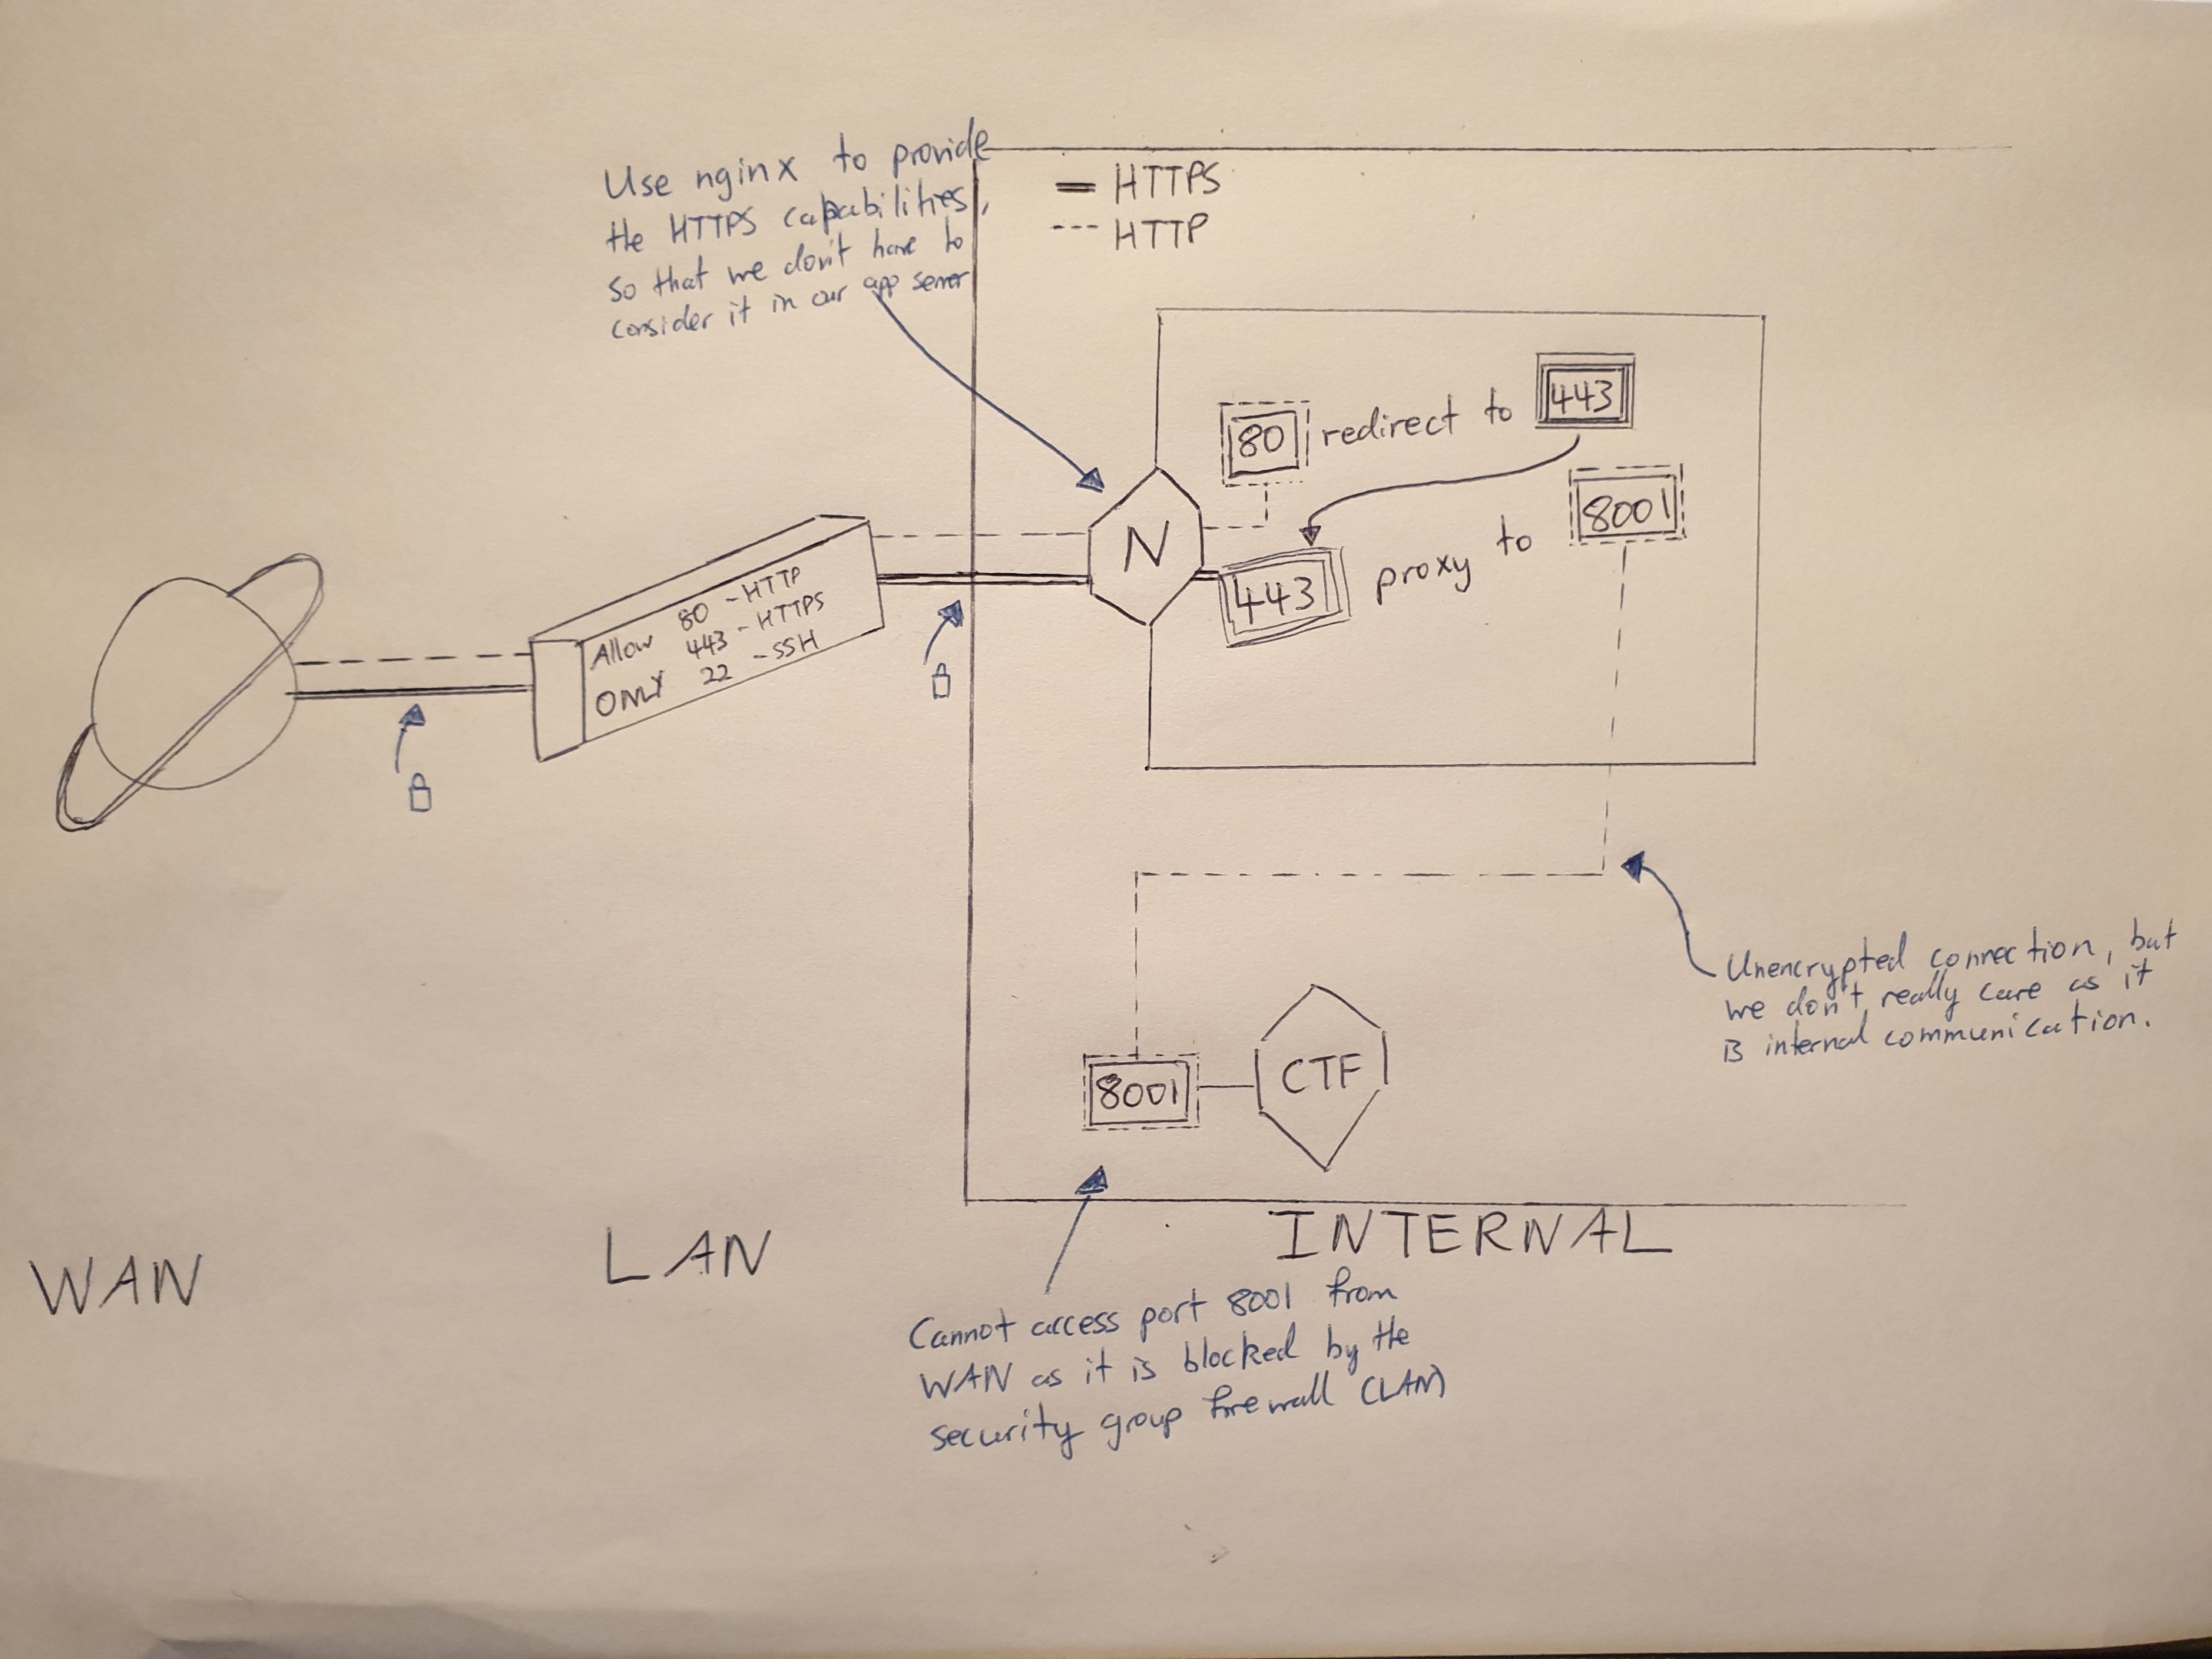 Use nginx to provide
the HTTPS capabilities,
so that we don't have to
consider it in our app server
HTTPS
HTTP
443
80 redirect to
8001
N
443 proxy to
Allow 80 - HTTP
443 - HTTPS
ONLY 22 - SSH
Unencrypted connection, but
we don't really care as it
is internal communication.
8001
CTF
INTERNAL
LAN
WAN
Cannot access port 8001 from
WAN as it is blocked by the
security group firewall (LAN)